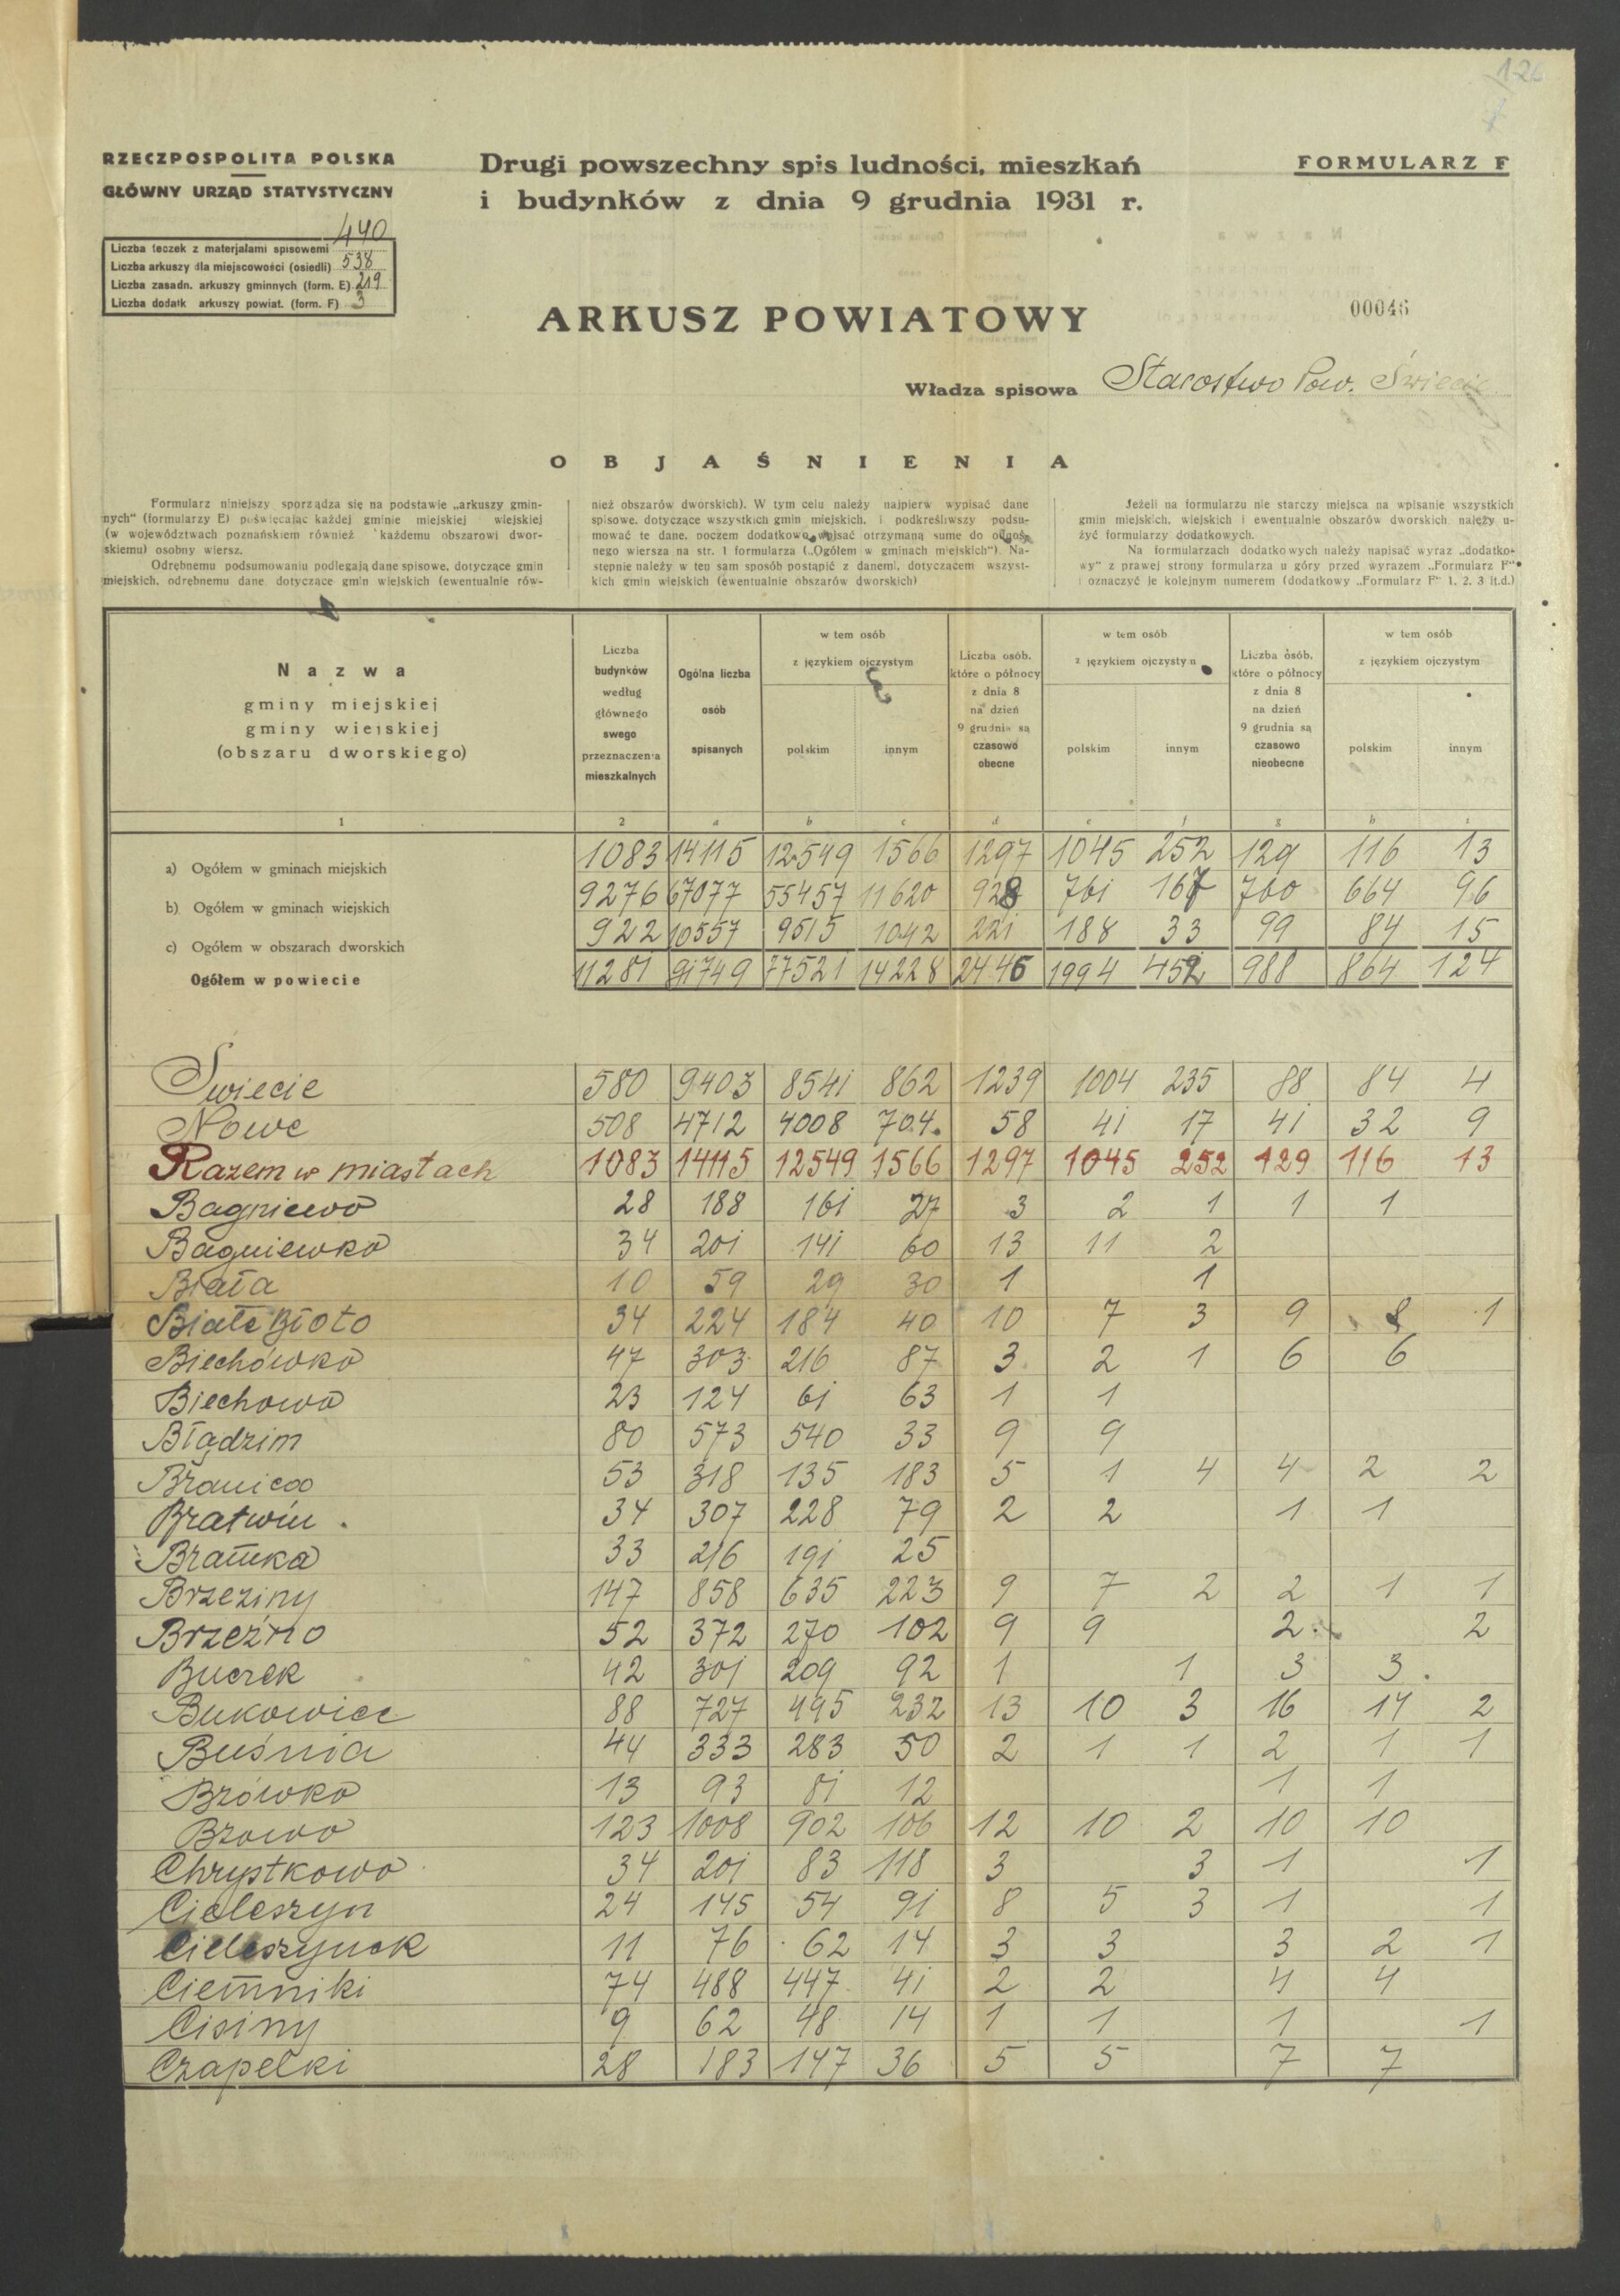 126
RZECZPOSPOLITA POLSKA
GŁÓWNY URZĄD STATYSTYCZNY
Drugi powszechny spis ludności, mieszkań
i budynków z dnia 9 grudnia 1931 r.
FORMULARZ F
Liczba teczek z materjałami spisowemi 440
Liczba arkuszy dla miejscowości (osiedli) 538
Liczba zasadn. arkuszy gminnych (form. E) 219
Liczba dodatk arkuszy powiat. (form. F) 3
ARKUSZ POWIATOWY
00046
Władza spisowa Starostwo Pow. Świecie
OBJAŚNIENIA
Formularz niniejszy sporządza się na podstawie „arkuszy gmin-
nych“ (formularzy E) poświęcając każdej gminie miejskiej wiejskiej
(w województwach poznańskiem również każdemu obszarowi dwor-
skiemu) osobny wiersz.
Odrębnemu podsumowaniu podlegają dane spisowe, dotyczące gmin
miejskich, odrębnemu dane dotyczące gmin wiejskich (ewentualnie rów-
nież obszarów dworskich). W tym celu należy najpierw wypisać dane
spisowe, dotyczące wszystkich gmin miejskich, i podkreśliwszy podsu-
mować te dane, poczem dodatkowo wpisać otrzymaną sumę do odnoś-
nego wiersza na str. 1 formularza („Ogółem w gminach miejskich“). Na-
stępnie należy w ten sam sposób postąpić z danemi, dotyczącem wszyst-
kich gmin wiejskich (ewentualnie obszarów dworskich)
Jeżeli na formularzu nie starczy miejsca na wpisanie wszystkich
gmin miejskich, wiejskich i ewentualnie obszarów dworskich należy u-
żyć formularzy dodatkowych.
Na formularzach dodatkowych należy napisać wyraz „dodatko-
wy“ z prawej strony formularza u góry przed wyrazem „Formularz F“
i oznaczyć je kolejnym numerem (dodatkowy „Formularz F“ 1, 2, 3 it.d.)
Nazwa
gminy miejskiej
gminy wiejskiej
(obszaru dworskiego)
Liczba
budynków
według
głównego
swego
przeznaczenia
mieszkalnych
Ogólna liczba
osób
spisanych
w tem osób
z językiem ojczystym
polskim innym
Liczba osób,
które o północy
z dnia 8
na dzień
9 grudnia są
czasowo
obecne
w tem osób
z językiem ojczystym
polskim innym
Liczba osób,
które o północy
z dnia 8
na dzień
9 grudnia są
czasowo
nieobecne
w tem osób
z językiem ojczystym
polskim innym
1 2 a b c d e f g h i
a) Ogółem w gminach miejskich 1083 14115 12549 1566 1297 1045 252 129 116 13
b) Ogółem w gminach wiejskich 9276 67077 55457 11620 928 761 167 760 664 96
c) Ogółem w obszarach dworskich 922 10557 9515 1042 221 188 33 99 84 15
Ogółem w powiecie 11281 91749 77521 14228 2446 1994 452 988 864 124
Świecie 580 9403 8541 862 1239 1004 235 88 84 4
Nowe 508 4712 4008 704. 58 41 17 41 32 9
Razem w miastach 1083 14115 12549 1566 1297 1045 252 129 116 13
Bagniewo 28 188 161 27 3 2 1 1 1
Bagniewko 34 201 141 60 13 11 2
Biała 10 59 29 30 1 1
Białe Błoto 34 224 184 40 10 7 3 9 8 1
Biechówko 47 303 216 87 3 2 1 6 6
Biechowo 23 124 61 63 1 1
Błądzim 80 573 540 33 9 9
Branica 53 318 135 183 5 1 4 4 2 2
Bratwin. 34 307 228 79 2 2 1 1
Bramka 33 216 191 25
Brzeziny 147 858 635 223 9 7 2 2 1 1
Brzeźno 52 372 270 102 9 9 2 2
Buczek 42 301 209 92 1 1 3 3.
Bukowiec 88 727 495 232 13 10 3 16 14 2
Buśnia 44 333 283 50 2 1 1 2 1 1
Bzówko 13 93 81 12 1 1
Bzowo 123 1008 902 106 12 10 2 10 10
Chrystkowo 34 201 83 118 3 3 1 1
Cieleszyn 24 145 54 91 8 5 3 1 1
Cieleszynek 11 76 62 14 3 3 3 2 1
Ciemniki 74 488 447 41 2 2 4 4
Cisiny 9 62 48 14 1 1 1 1
Czapelki 28 183 147 36 5 5 7 7